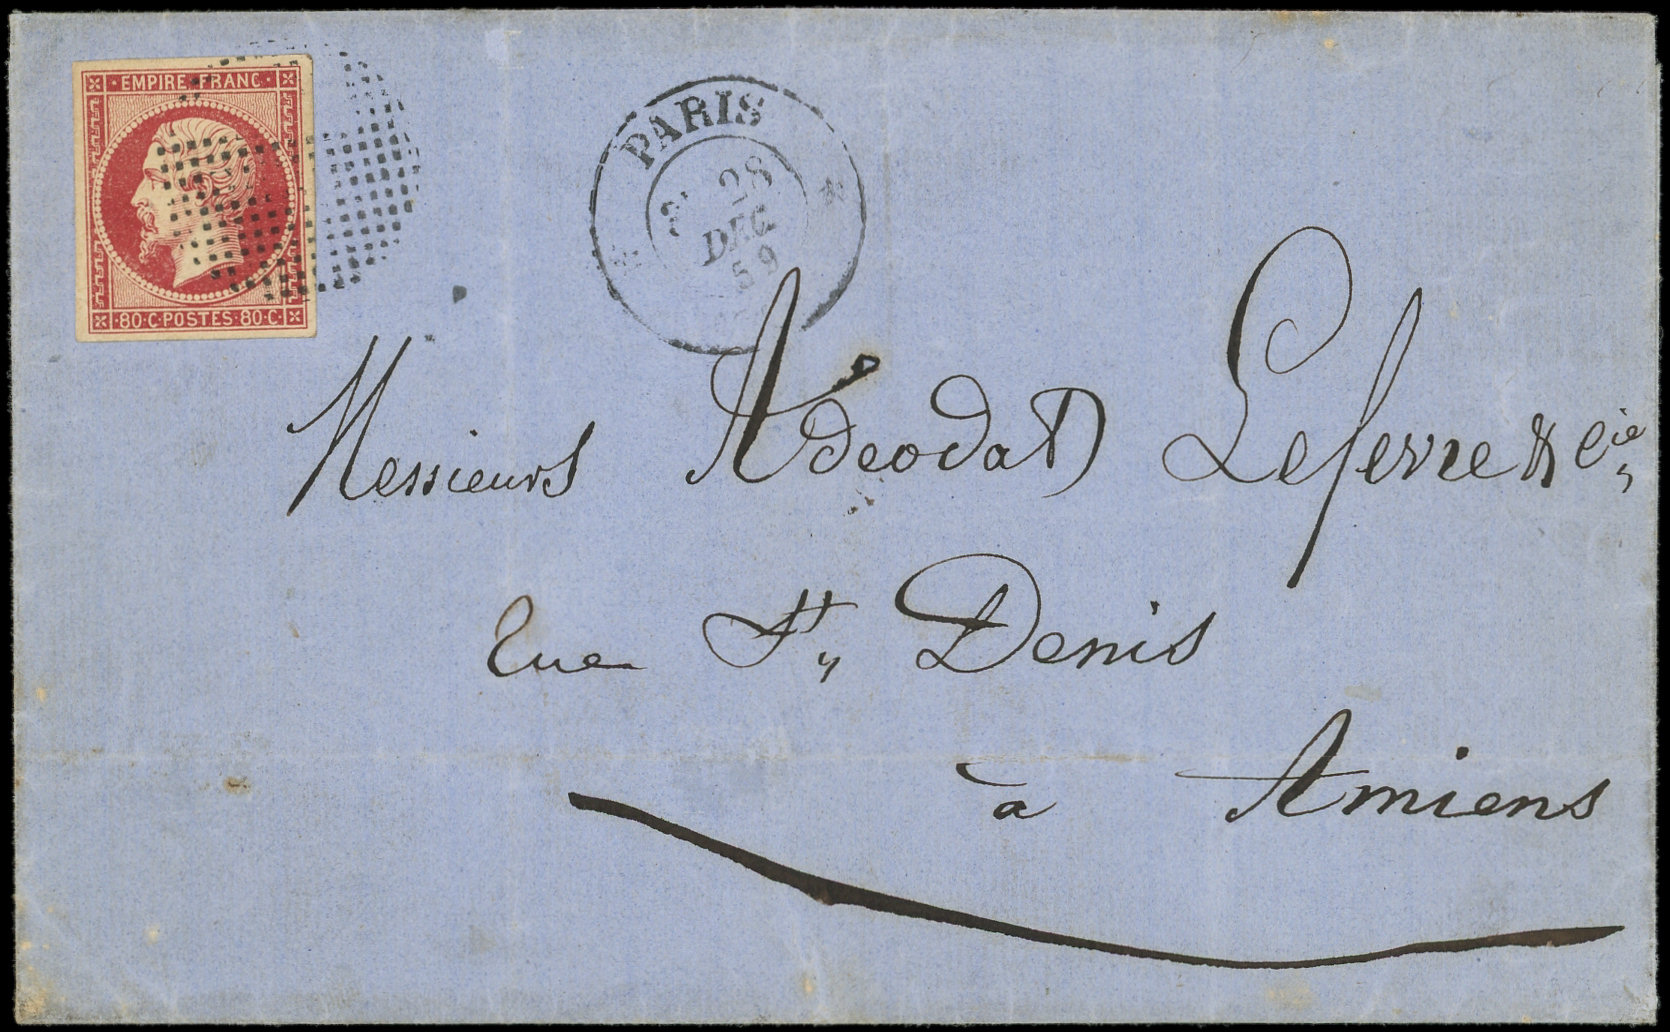 EMPIRE FRANC
80·C·POSTES·80·C
PARIS
28
DEC.
59
Messieurs Adéodat Lefevre & Cie
Rue St Denis
à Amiens